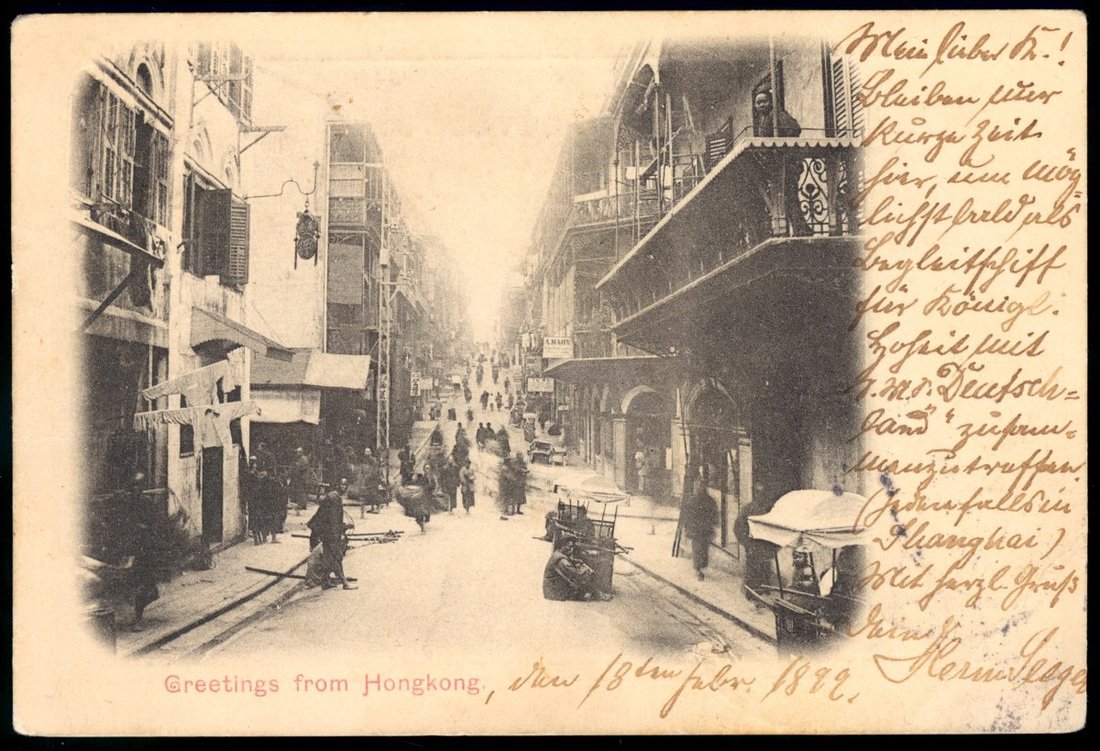 Mein lieber K.!
Bleiben nur
kurze Zeit
hier, um mög=
lichst bald als
Begleitschiff
für Königl.
Hoheit mit
S.M.S. Deutsch=
land" zusam=
menzutreffen
(jedenfalls in
Shanghai)
Mit herzl. Gruß
Dein
Herm
Greetings from Hongkong, den 18ten Febr. 1899.